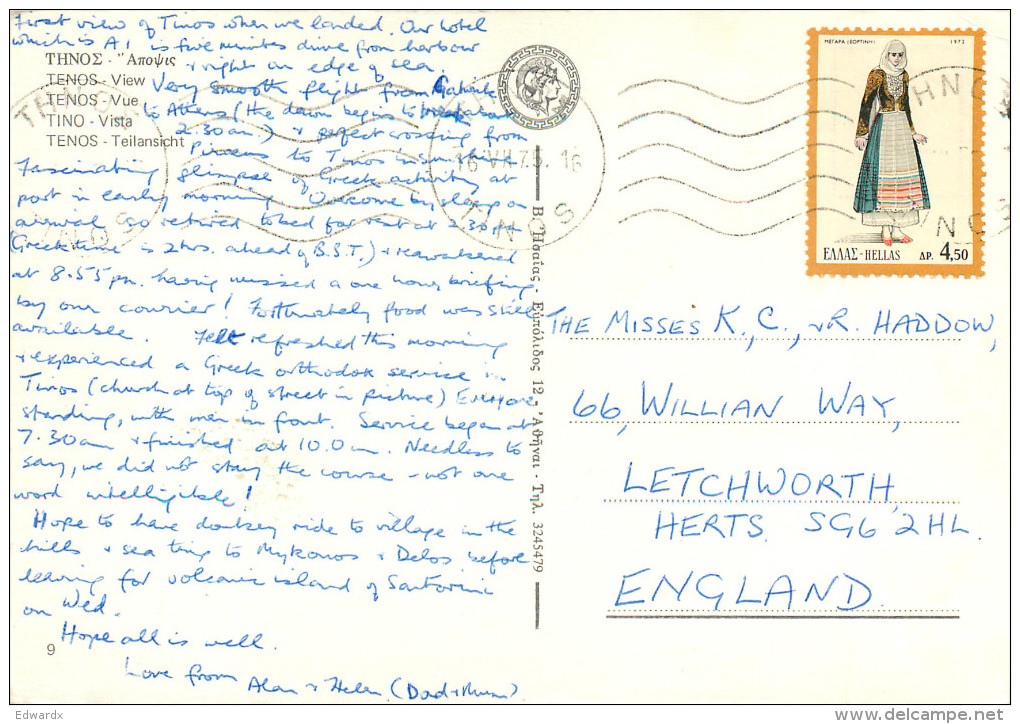 First view of Tinos when we landed. Our hotel
which is A1 is five minutes drive from harbour
+ right on edge of sea.
ΤΗΝΟΣ - "Αποψις
TENOS - View
TENOS - Vue
TINO - Vista
TENOS - Teilansicht
Very smooth flight from Gatwick
to Athens (the dawn began to break about
2.30 am.) + perfect crossing from
Piraeus to Tinos in sunshine
Fascinating glimpse of Greek activity at
port in early morning. Overcome by sleep on
arrival so retired to bed for rest at 2.30 pm
(Greek time is 2 hrs. ahead of B.S.T.) + reawakened
at 8.55 pm. having missed a one hour briefing
by our courier! Fortunately food was still
available. Felt refreshed this morning
+ experienced a Greek orthodox service in
Tinos (church at top of street in picture) Everyone
standing, with men in front. Service began at
7.30 am + finished at 10.0 am. Needless to
say, we did not stay the course - not one
word intelligible!
Hope to have donkey ride to village in the
hills + sea trip to Mykonos + Delos before
leaving for volcanic island of Santorini
on Wed.
Hope all is well.
Love from
Alan + Helen (Dad + Mum)
9
Β. Ησαΐας - Ευπόλιδος 12 - 'Αθήναι - Τηλ. 3245479
ΜΕΓΑΡΑ (ΕΟΡΤΙΝΗ) 1972
ΕΛΛΑΣ-HELLAS ΔΡ. 4,50
TENOS
16 VII 75. 16
THE MISSES K., C., + R. HADDOW,
66, WILLIAN WAY,
LETCHWORTH
HERTS. SG6 2HL.
ENGLAND.
Edwardx
www.delcampe.net